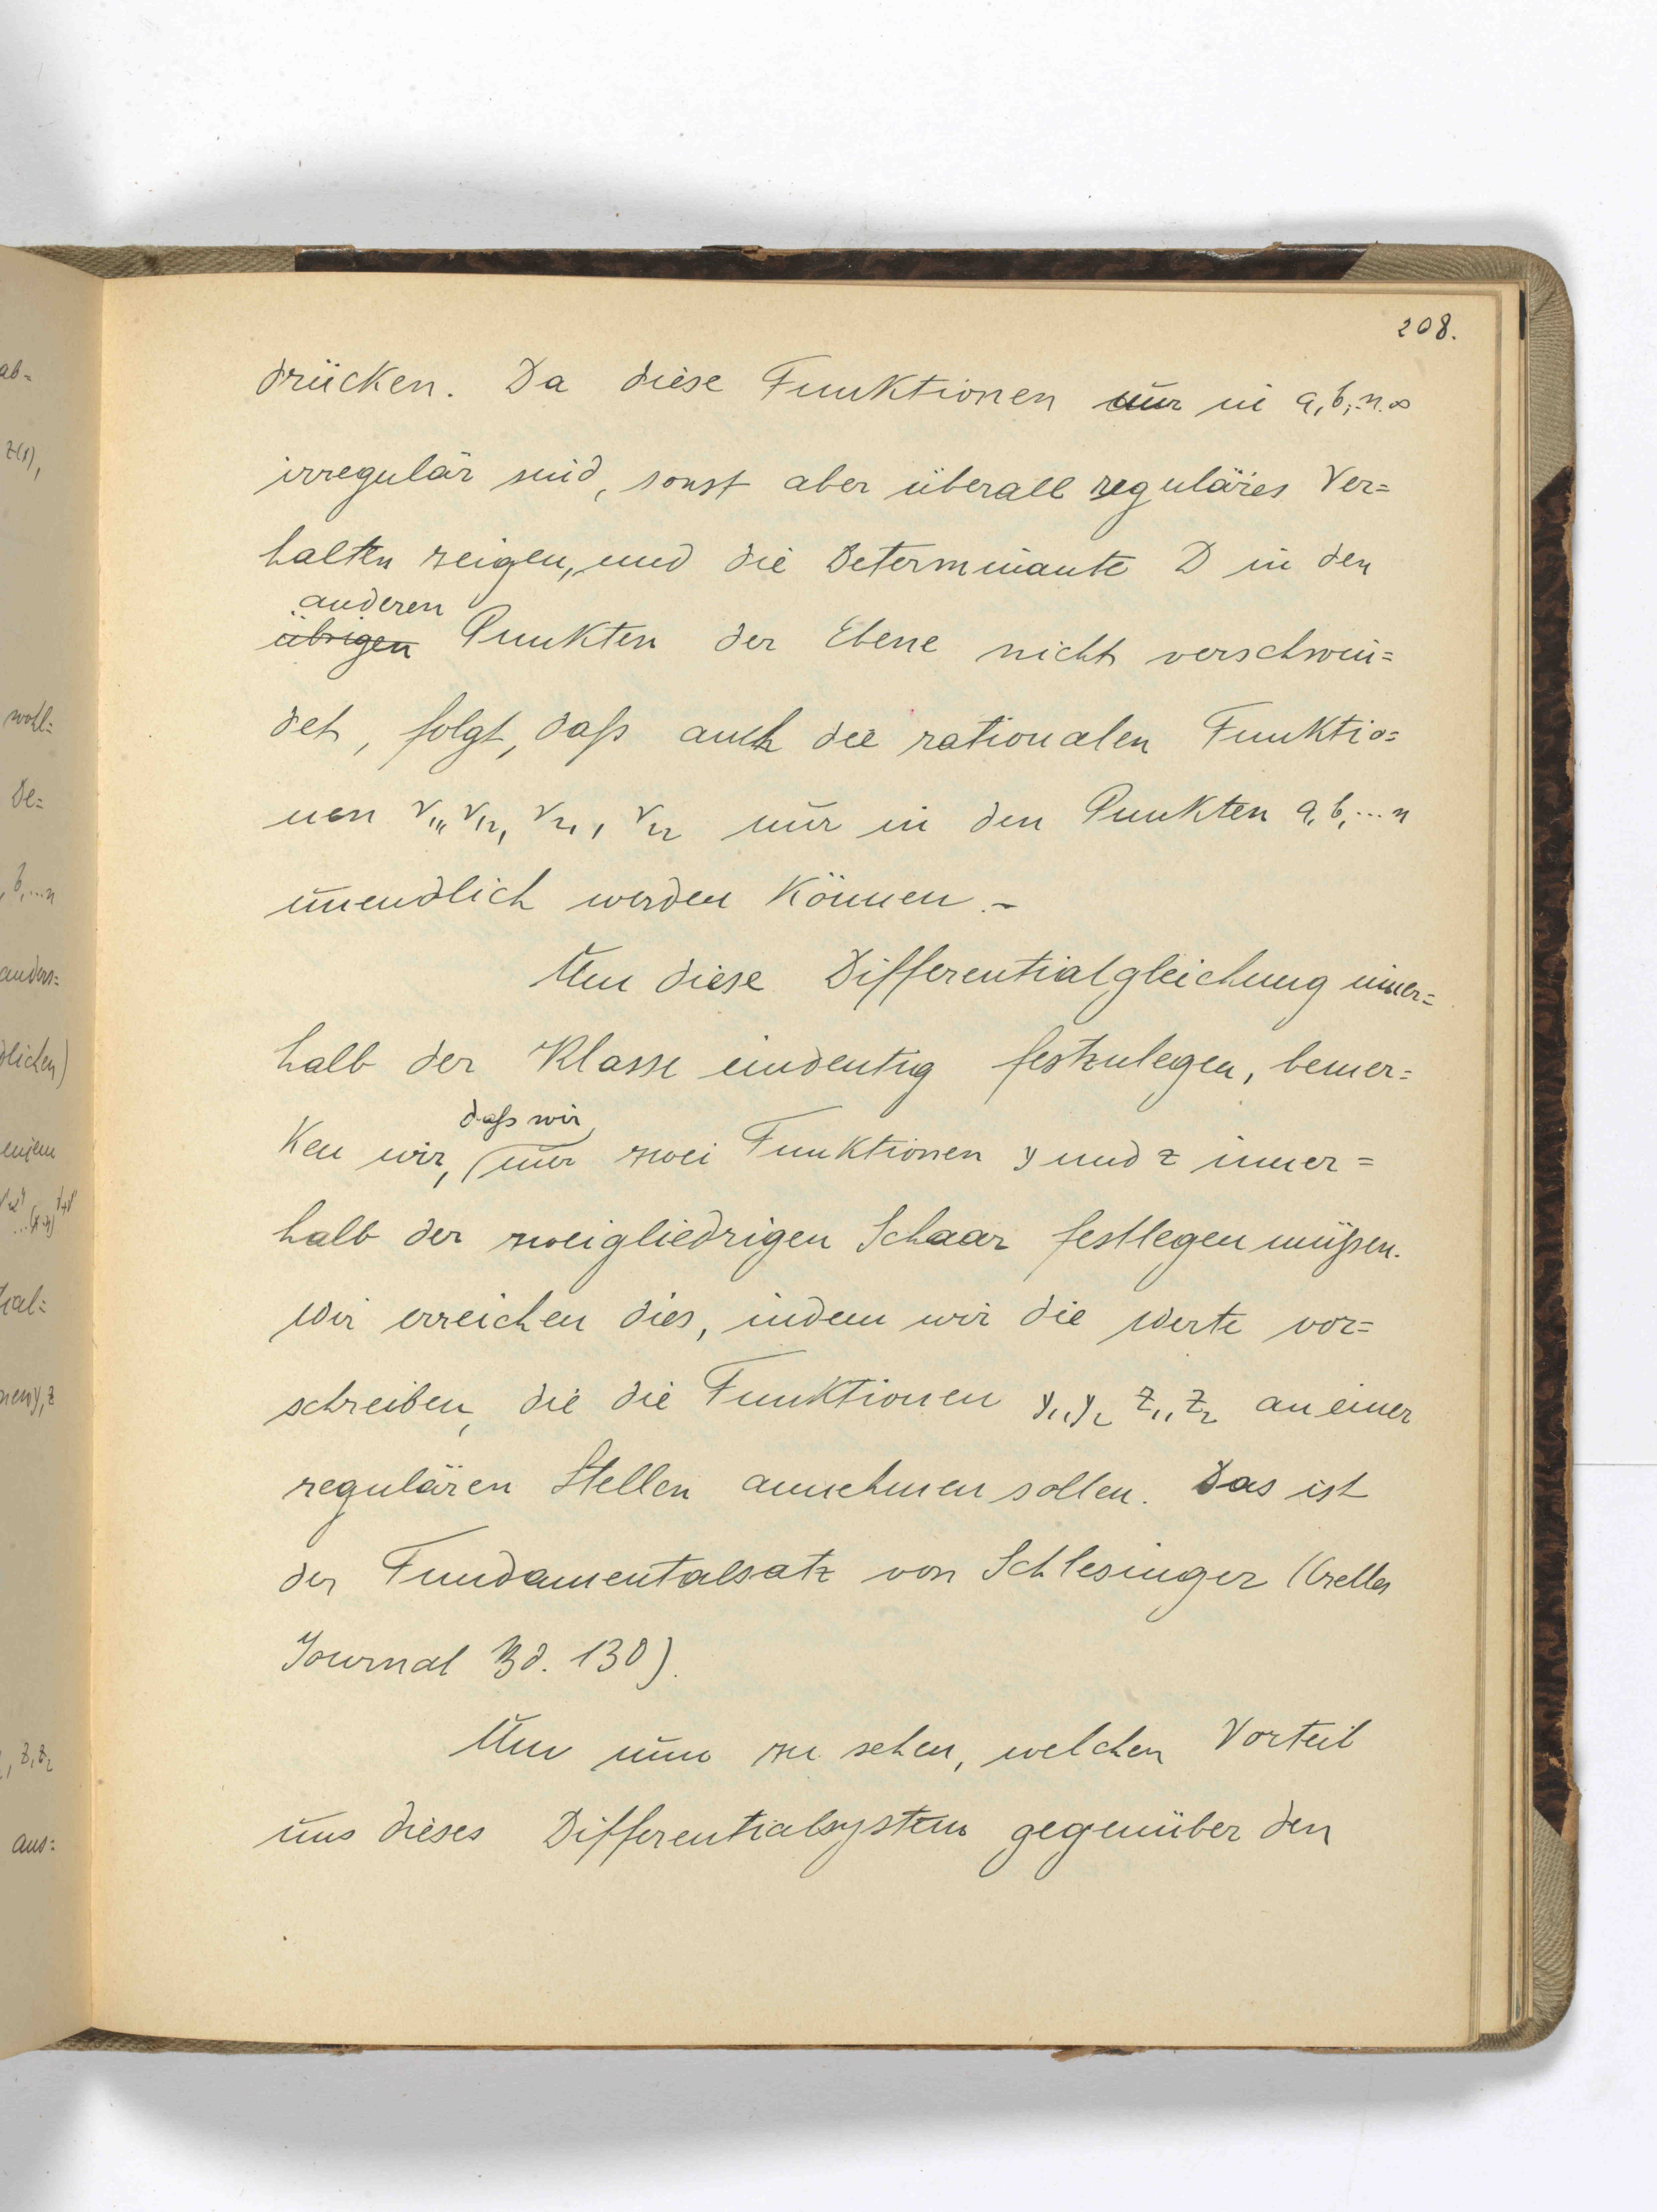 208.
drücken. Da diese Funktionen nur in a, b, ... n. ∞
irregulär sind, sonst aber überall reguläres Ver=
halten zeigen, und die Determinante D in den
anderen
übrigen Punkten der Ebene nicht verschwin=
det, folgt, daß auch die rationalen Funktio=
nen r₁₁, r₁₂, r₂₁, r₂₂ nur in den Punkten a, b, ... n
unendlich werden können. –
Um diese Differentialgleichung inner=
halb der Klasse eindeutig festzulegen, bemer=
daß wir
ken wir, nur zwei Funktionen y und z inner=
halb der zweigliedrigen Schaar festlegen müßen.
Wir erreichen dies, indem wir die Werte vor=
schreiben, die die Funktionen y₁, y₂ z₁, z₂ an einer
regulären Stellen annehmen sollen. Das ist
der Fundamentalsatz von Schlesinger (Crelles
Journal Bd. 130).
Um nun zu sehen, welchen Vorteil
uns dieses Differentialsystem gegenüber den
ab=
z(1),
wohl=
De=
, b, ... n
anders=
dlichen)
einem
tial=
nen y, z
, z₁ z₂
aus=